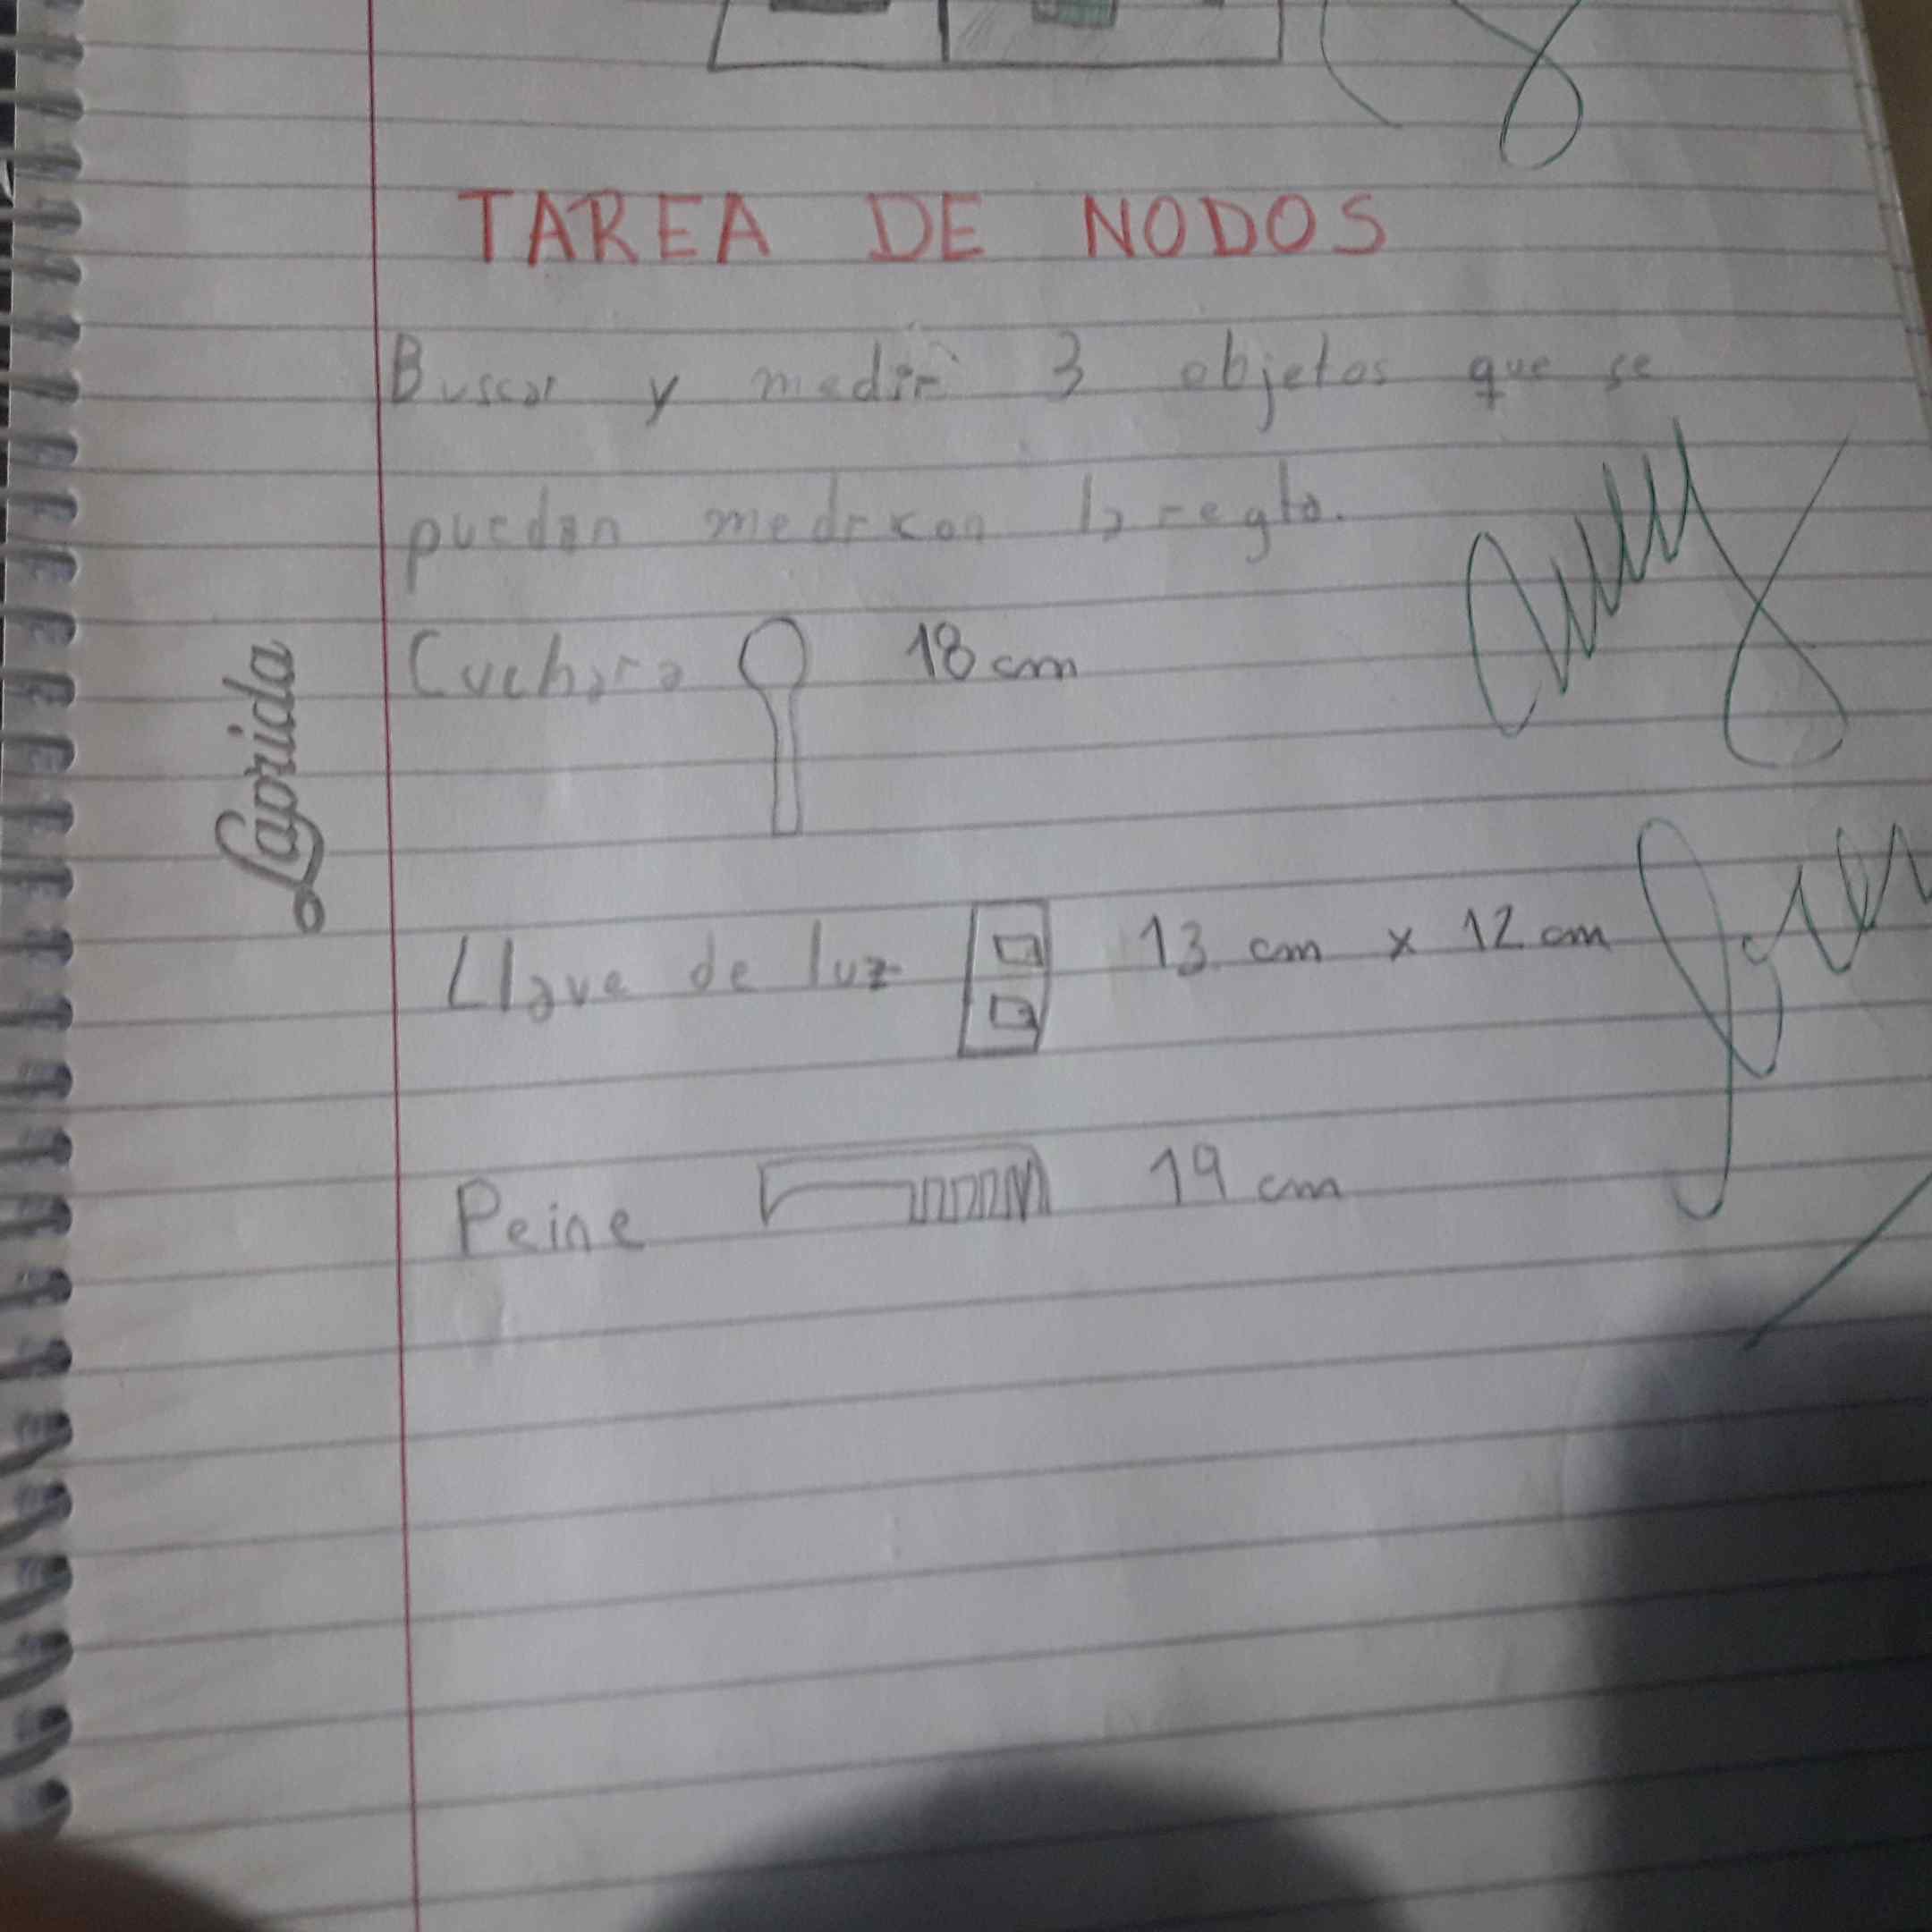 TAREA DE NODOS
Buscar y medir 3 objetos que se
puedan medir con la regla.
Cuchara 18 cm
Laprida
Llave de luz 13 cm x 12 cm
Peine 19 cm